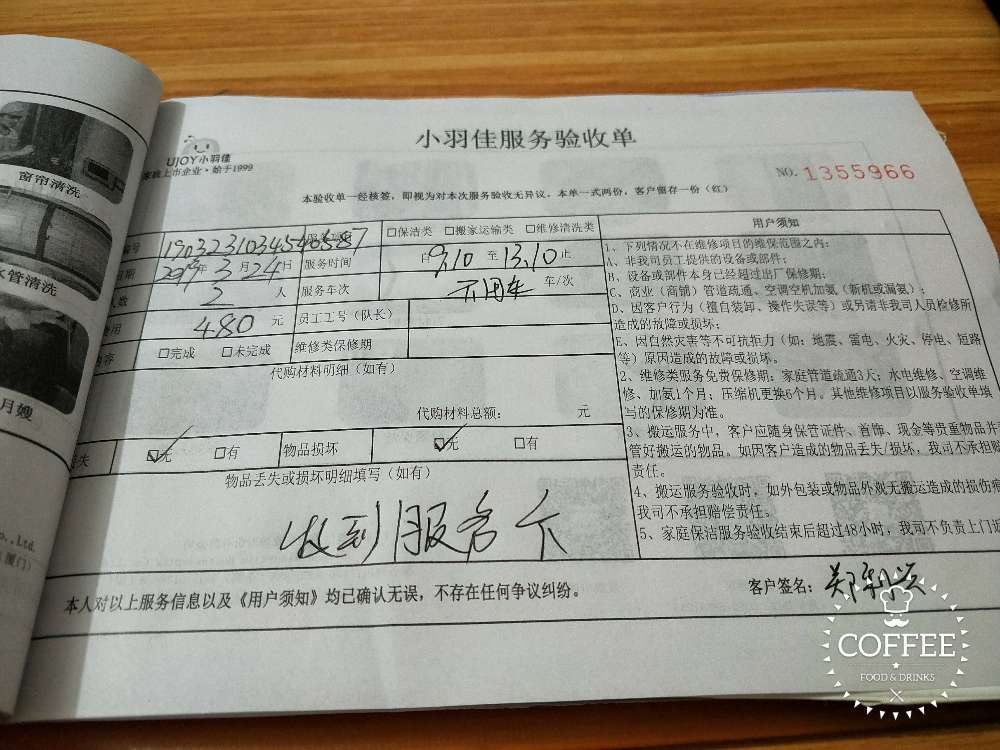 小羽佳服务验收单
UJOY小羽佳
家政上市企业·始于1999
NO. 1355966
本验收单一经核签，即视为对本次服务验收无异议。本单一式两份，客户留存一份（红）
编号
□保洁类 □搬家运输类 □维修清洗类
日期 2019年3月24日 服务时间 自9:10至13:10止
人数 2 人 服务车次 不用车 车/次
费用 480 元 员工工号（队长）
内容 □完成 □未完成 维修类保修期
代购材料明细（如有）
代购材料总额： 元
丢失 ☑无 □有 物品损坏 ☑无 □有
物品丢失或损坏明细填写（如有）
收到服务卡
用户须知
1、下列情况不在维修项目的维保范围之内：
A、非我司员工提供的设备或部件；
B、设备或部件本身已经超过出厂保修期；
C、商业（商铺）管道疏通、空调空机加氨（新机或漏氨）；
D、因客户行为（擅自装卸、操作失误等）或另请非我司人员检修所
造成的故障或损坏；
E、因自然灾害等不可抗拒力（如：地震、雷电、火灾、停电、短路
等）原因造成的故障或损坏。
2、维修类服务免费保修期：家庭管道疏通3天；水电维修、空调维
修、加氨1个月；压缩机更换6个月。其他维修项目以服务验收单填
写的保修期为准。
3、搬运服务中，客户应随身保管证件、首饰、现金等贵重物品并
管好搬运的物品。如因客户造成的物品丢失/损坏，我司不承担赔
责任。
4、搬运服务验收时，如外包装或物品外观无搬运造成的损伤痕
我司不承担赔偿责任。
5、家庭保洁服务验收结束后超过48小时，我司不负责上门返
本人对以上服务信息以及《用户须知》均已确认无误，不存在任何争议纠纷。
客户签名：
窗帘清洗
水管清洗
月嫂
o.,Ltd.
厦门）
COFFEE
FOOD & DRINKS